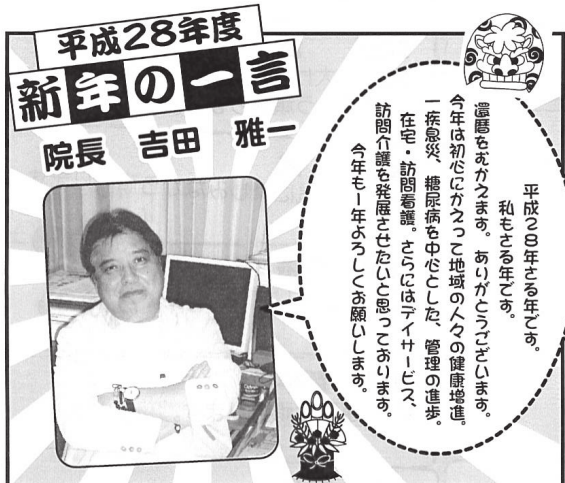 平成28年度
新年の一言
院長 吉田 雅一
平成28年さる年です。
私もさる年です。
還暦をむかえます。ありがとうございます。
今年は初心にかえって地域の人々の健康増進。
一疾息災、糖尿病を中心とした、管理の進歩。
在宅・訪問看護。さらにはデイサービス、
訪問介護を発展させたいと思っております。
今年も1年よろしくお願いします。